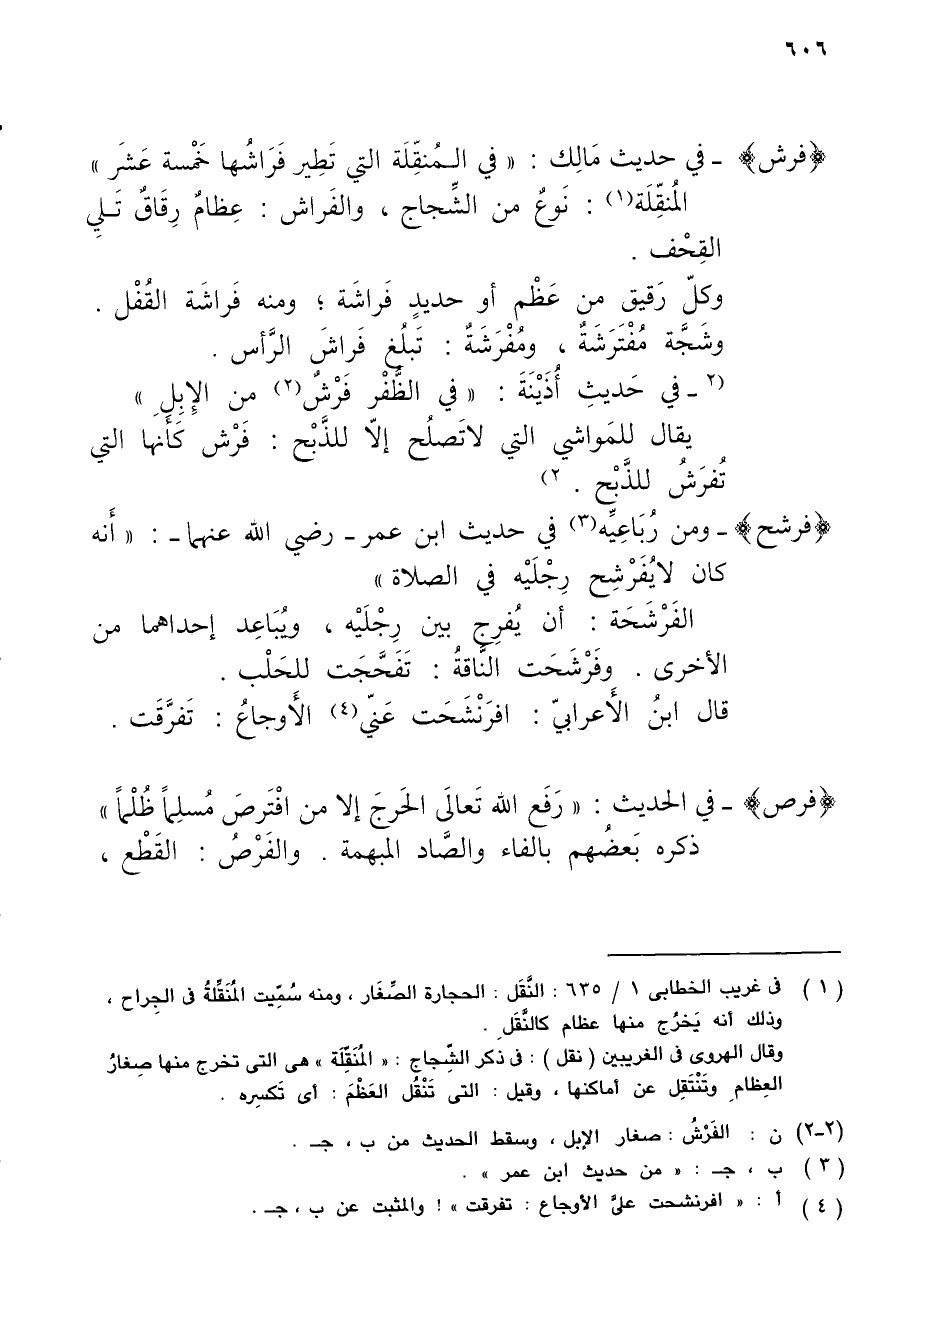 ٦٠٦
﴿فرش﴾ ـ في حديث مَالِك : « في الـمُنقِّلَة التي تَطِير فَرَاشُها خَمْسة عَشَر »
المُنقِّلَة(١) : نَوعٌ من الشِّجاج ، والفَراش : عِظامٌ رِقَاقٌ تَـلِي
القِحْف .
وكلّ رَقيق من عَظْم أو حديدٍ فَراشَة ؛ ومنه فَراشَة القُفْل .
وشَجَّة مُفْتَرَشَةٌ ، ومُفْرَشَةٌ : تَبلُغ فَراشَ الرَّأس .
(٢ ـ في حَديثِ أُذَيْنَةَ : « في الظُّفْر فَرْشٌ(٢) من الإِبِلِ »
يقال للمَواشي التي لاتَصلُح إلاّ للذَّبْح : فَرْش كَأنها التي
تُفرَشُ للذَّبْح . ٢)
﴿فرشح﴾ ـ ومن رُبَاعِيِّه(٣) في حديث ابن عمر ـ رضي الله عنهما ـ : « أَنه
كان لايُفَرْشِح رِجْلَيْه في الصلاة »
الفَرْشَحَة : أن يُفرِج بين رِجْلَيْه ، ويُبَاعِد إحداهما من
الأخرى . وفَرْشَحَت النَّاقةُ : تَفَحَّجَت للحَلْب .
قال ابنُ الأَعرابيّ : افرَنْشَحَت عَنّي(٤) الأَوجاعُ : تَفرَّقَت .
﴿فرص﴾ ـ في الحديث : « رَفَع الله تَعالَى الحَرجَ إلا من افْتَرصَ مُسلِماً ظُلْماً »
ذكره بَعضُهم بالفاء والصَّاد المبهمة . والفَرْصُ : القَطْع ،
(١) فى غريب الخطابى ١ / ٦٣٥ : النَّقَل : الحجارة الصِّغَار ، ومنه سُمِّيت المُنَقِّلَةُ فى الجِراح ،
وذلك أنه يَخرُج منها عظام كالنَّقَلِ .
وقال الهروى فى الغريبين ( نقل ) : فى ذكر الشِّجاج : « المُنَقِّلَة » هى التى تخرج منها صِغارُ
العِظامِ وتَنْتَقِل عن أماكنها ، وقيل : التى تَنْقُل العَظْمَ : أى تَكسِره .
(٢-٢) ن : الفَرْشُ : صغار الإبل ، وسقط الحديث من ب ، جـ .
(٣) ب ، جـ : « من حديث ابن عمر » .
(٤) أ : « افرنشحت علىَّ الأوجاع : تفرقت » ! والمثبت عن ب ، جـ .